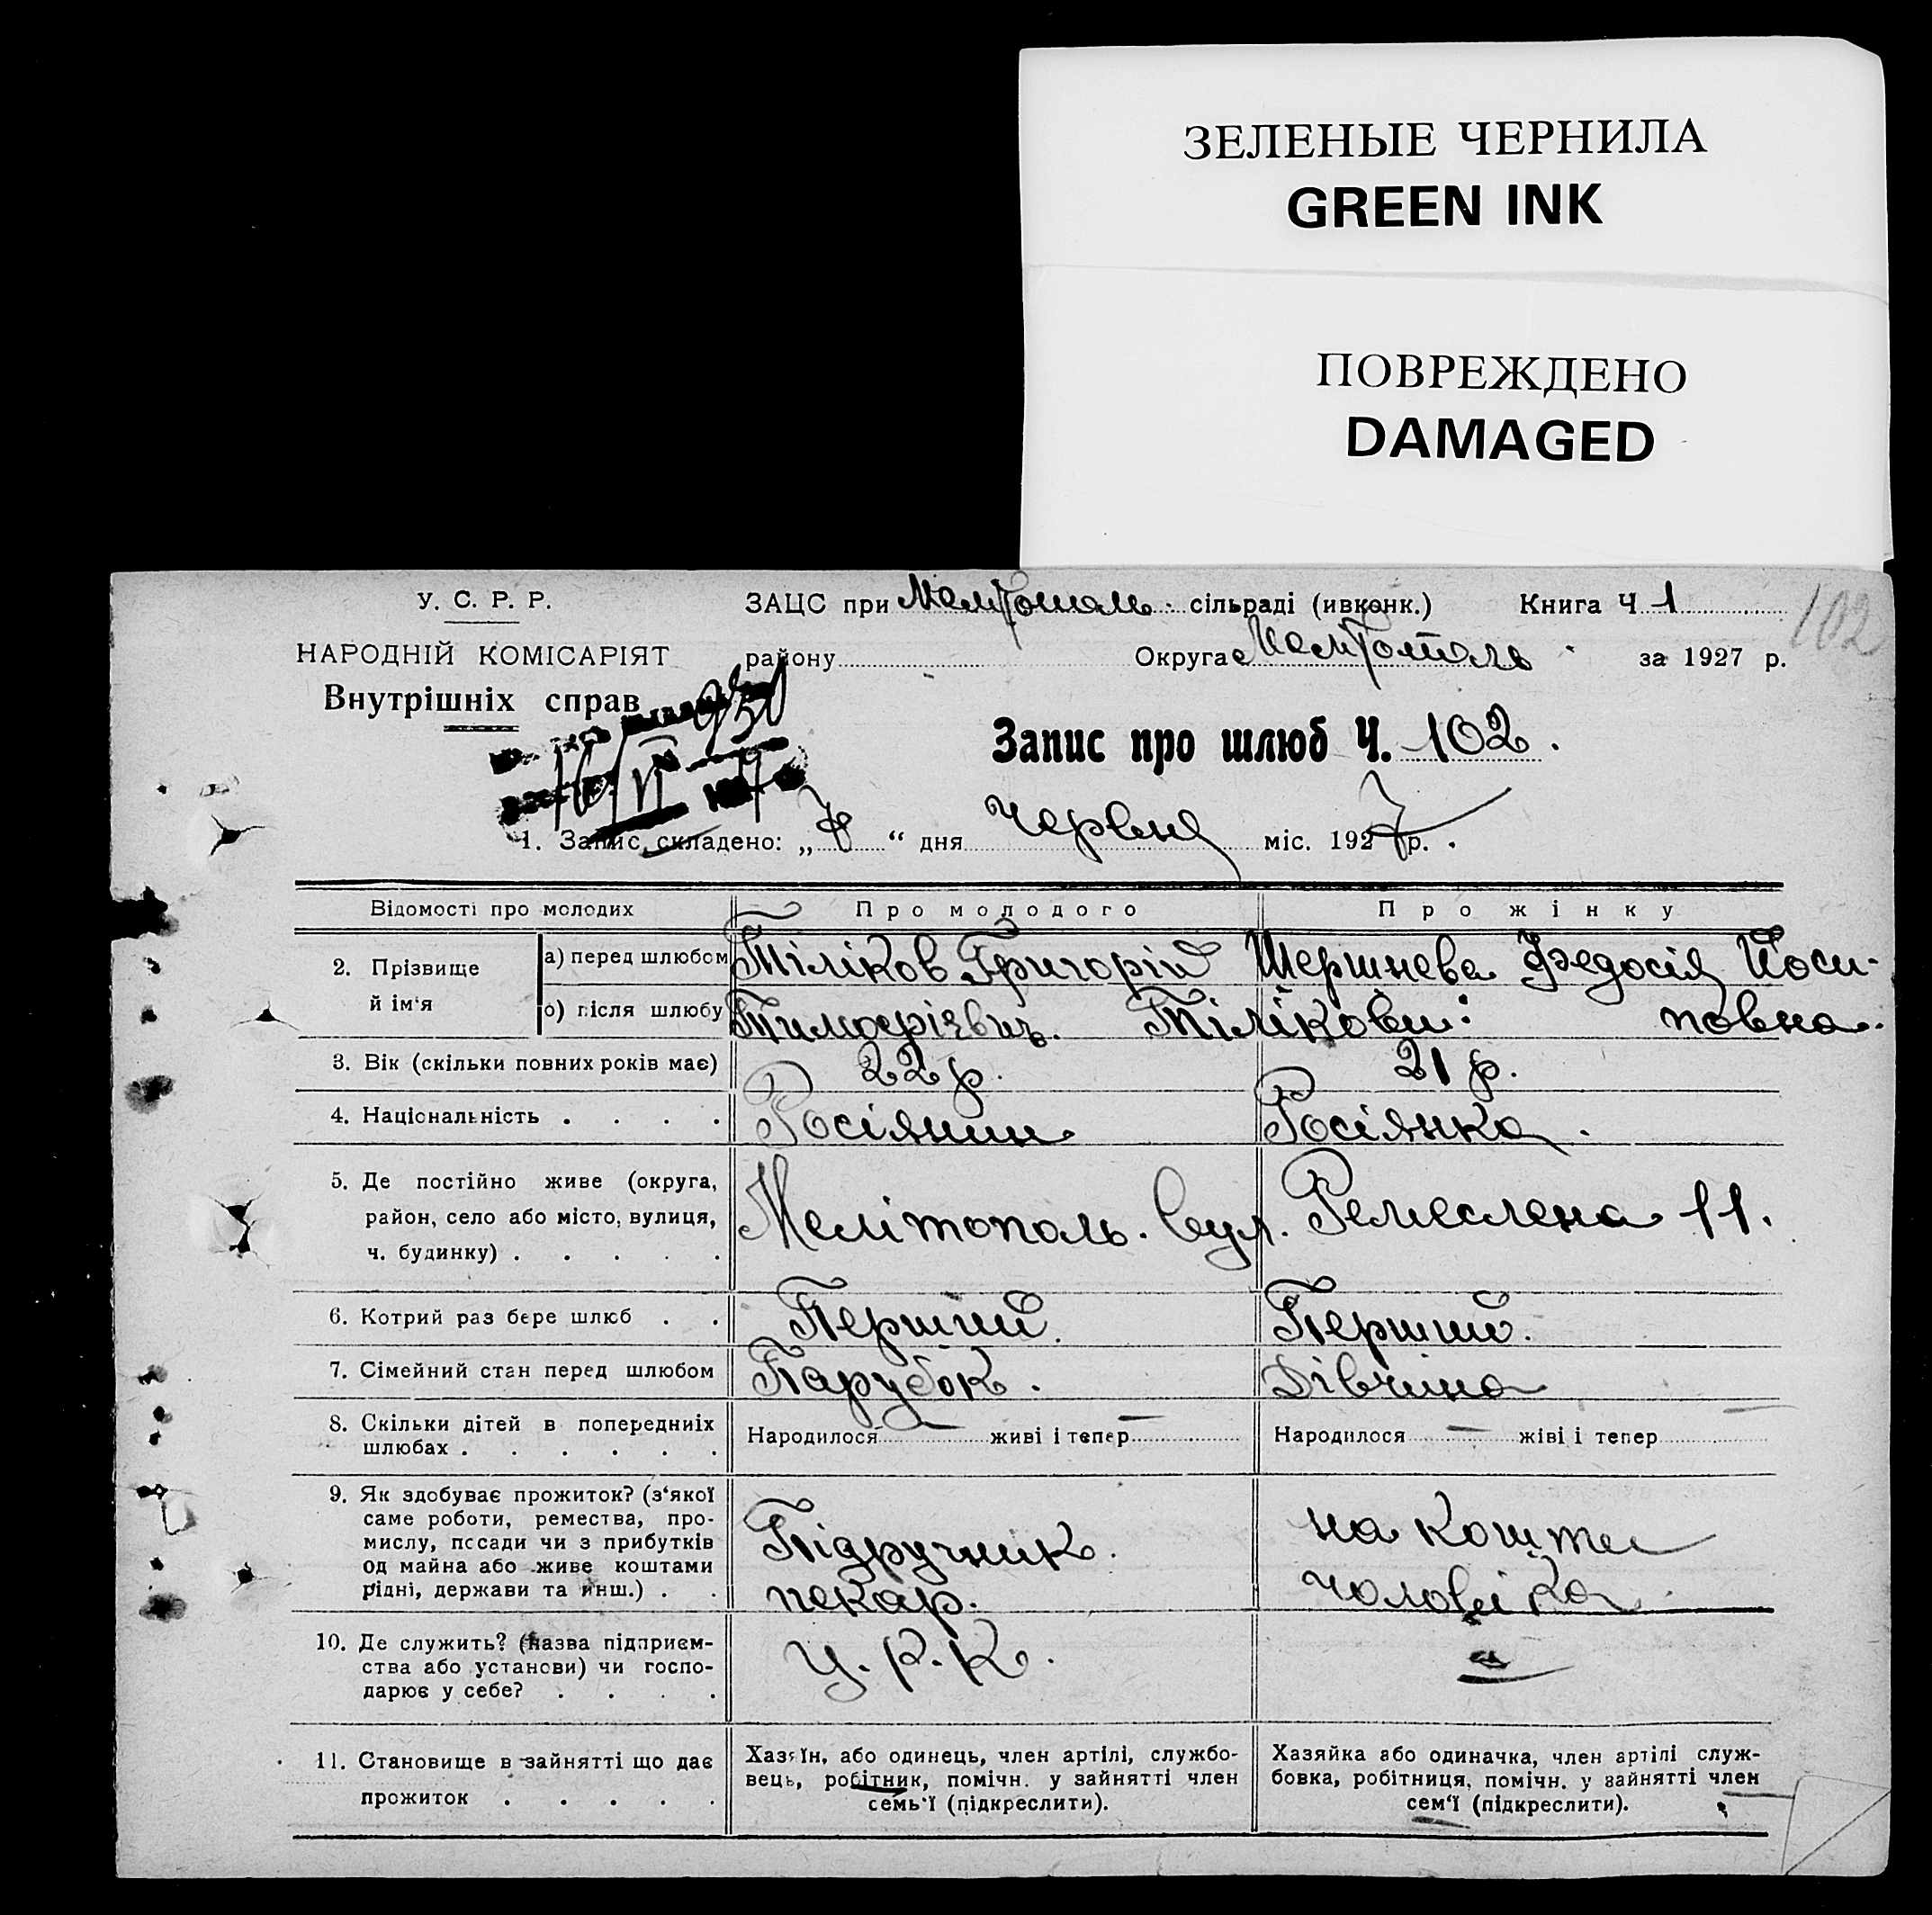 ЗЕЛЕНЫЕ ЧЕРНИЛА
GREEN INK
ПОВРЕЖДЕНО
DAMAGED
У. С. Р. Р.
НАРОДНІЙ КОМІСАРІЯТ
Внутрішніх справ
ЗАЦС при сільраді (ивконк.) Книга Ч 1
102
району Округа за 1927 р.
Запис про шлюб Ч. 102.
1. Запис складено: „7“ дня червня міс. 1927 р.
Відомості про молодих Про молодого Про жінку
2. Прізвище й ім'я
а) перед шлюбом Тіліков Григорій Шершнева Федосія Йоси-
б) після шлюбу Тимофієвич. Тілікови: повна.
3. Вік (скільки повних років має) 22 р. 21 р.
4. Національність . . . . Росіянин Росіянка.
5. Де постійно живе (округа,
район, село або місто, вулиця,
ч. будинку) . . . . .
Мелітополь. вул. Ремеслена 11.
6. Котрий раз бере шлюб . . Перший. Перший.
7. Сімейний стан перед шлюбом Парубок. Дівчина
8. Скільки дітей в попередниіх
шлюбах . . . . . .
Народилося — живі і тепер — Народилося — жіві і тепер
9. Як здобуває прожиток? (з'якої
саме роботи, ремества, про-
мислу, посади чи з прибутків
од майна або живе коштами
рідні, держави та инш.) . .
Підручник
пекар.
на кошти
чоловіка
10. Де служить? (назва підприєм-
ства або установи) чи госпо-
дарює у себе? . . . .
У. Р. К.
11. Становище в зайнятті що дає
прожиток . . . . .
Хазяїн, або одинець, член артілі, службо-
вець, робітник, помічн. у зайнятті член
семь'ї (підкреслити).
Хазяйка або одиначка, член артілі служ-
бовка, робітниця, помічн. у зайнятті член
сем'ї (підкреслити).